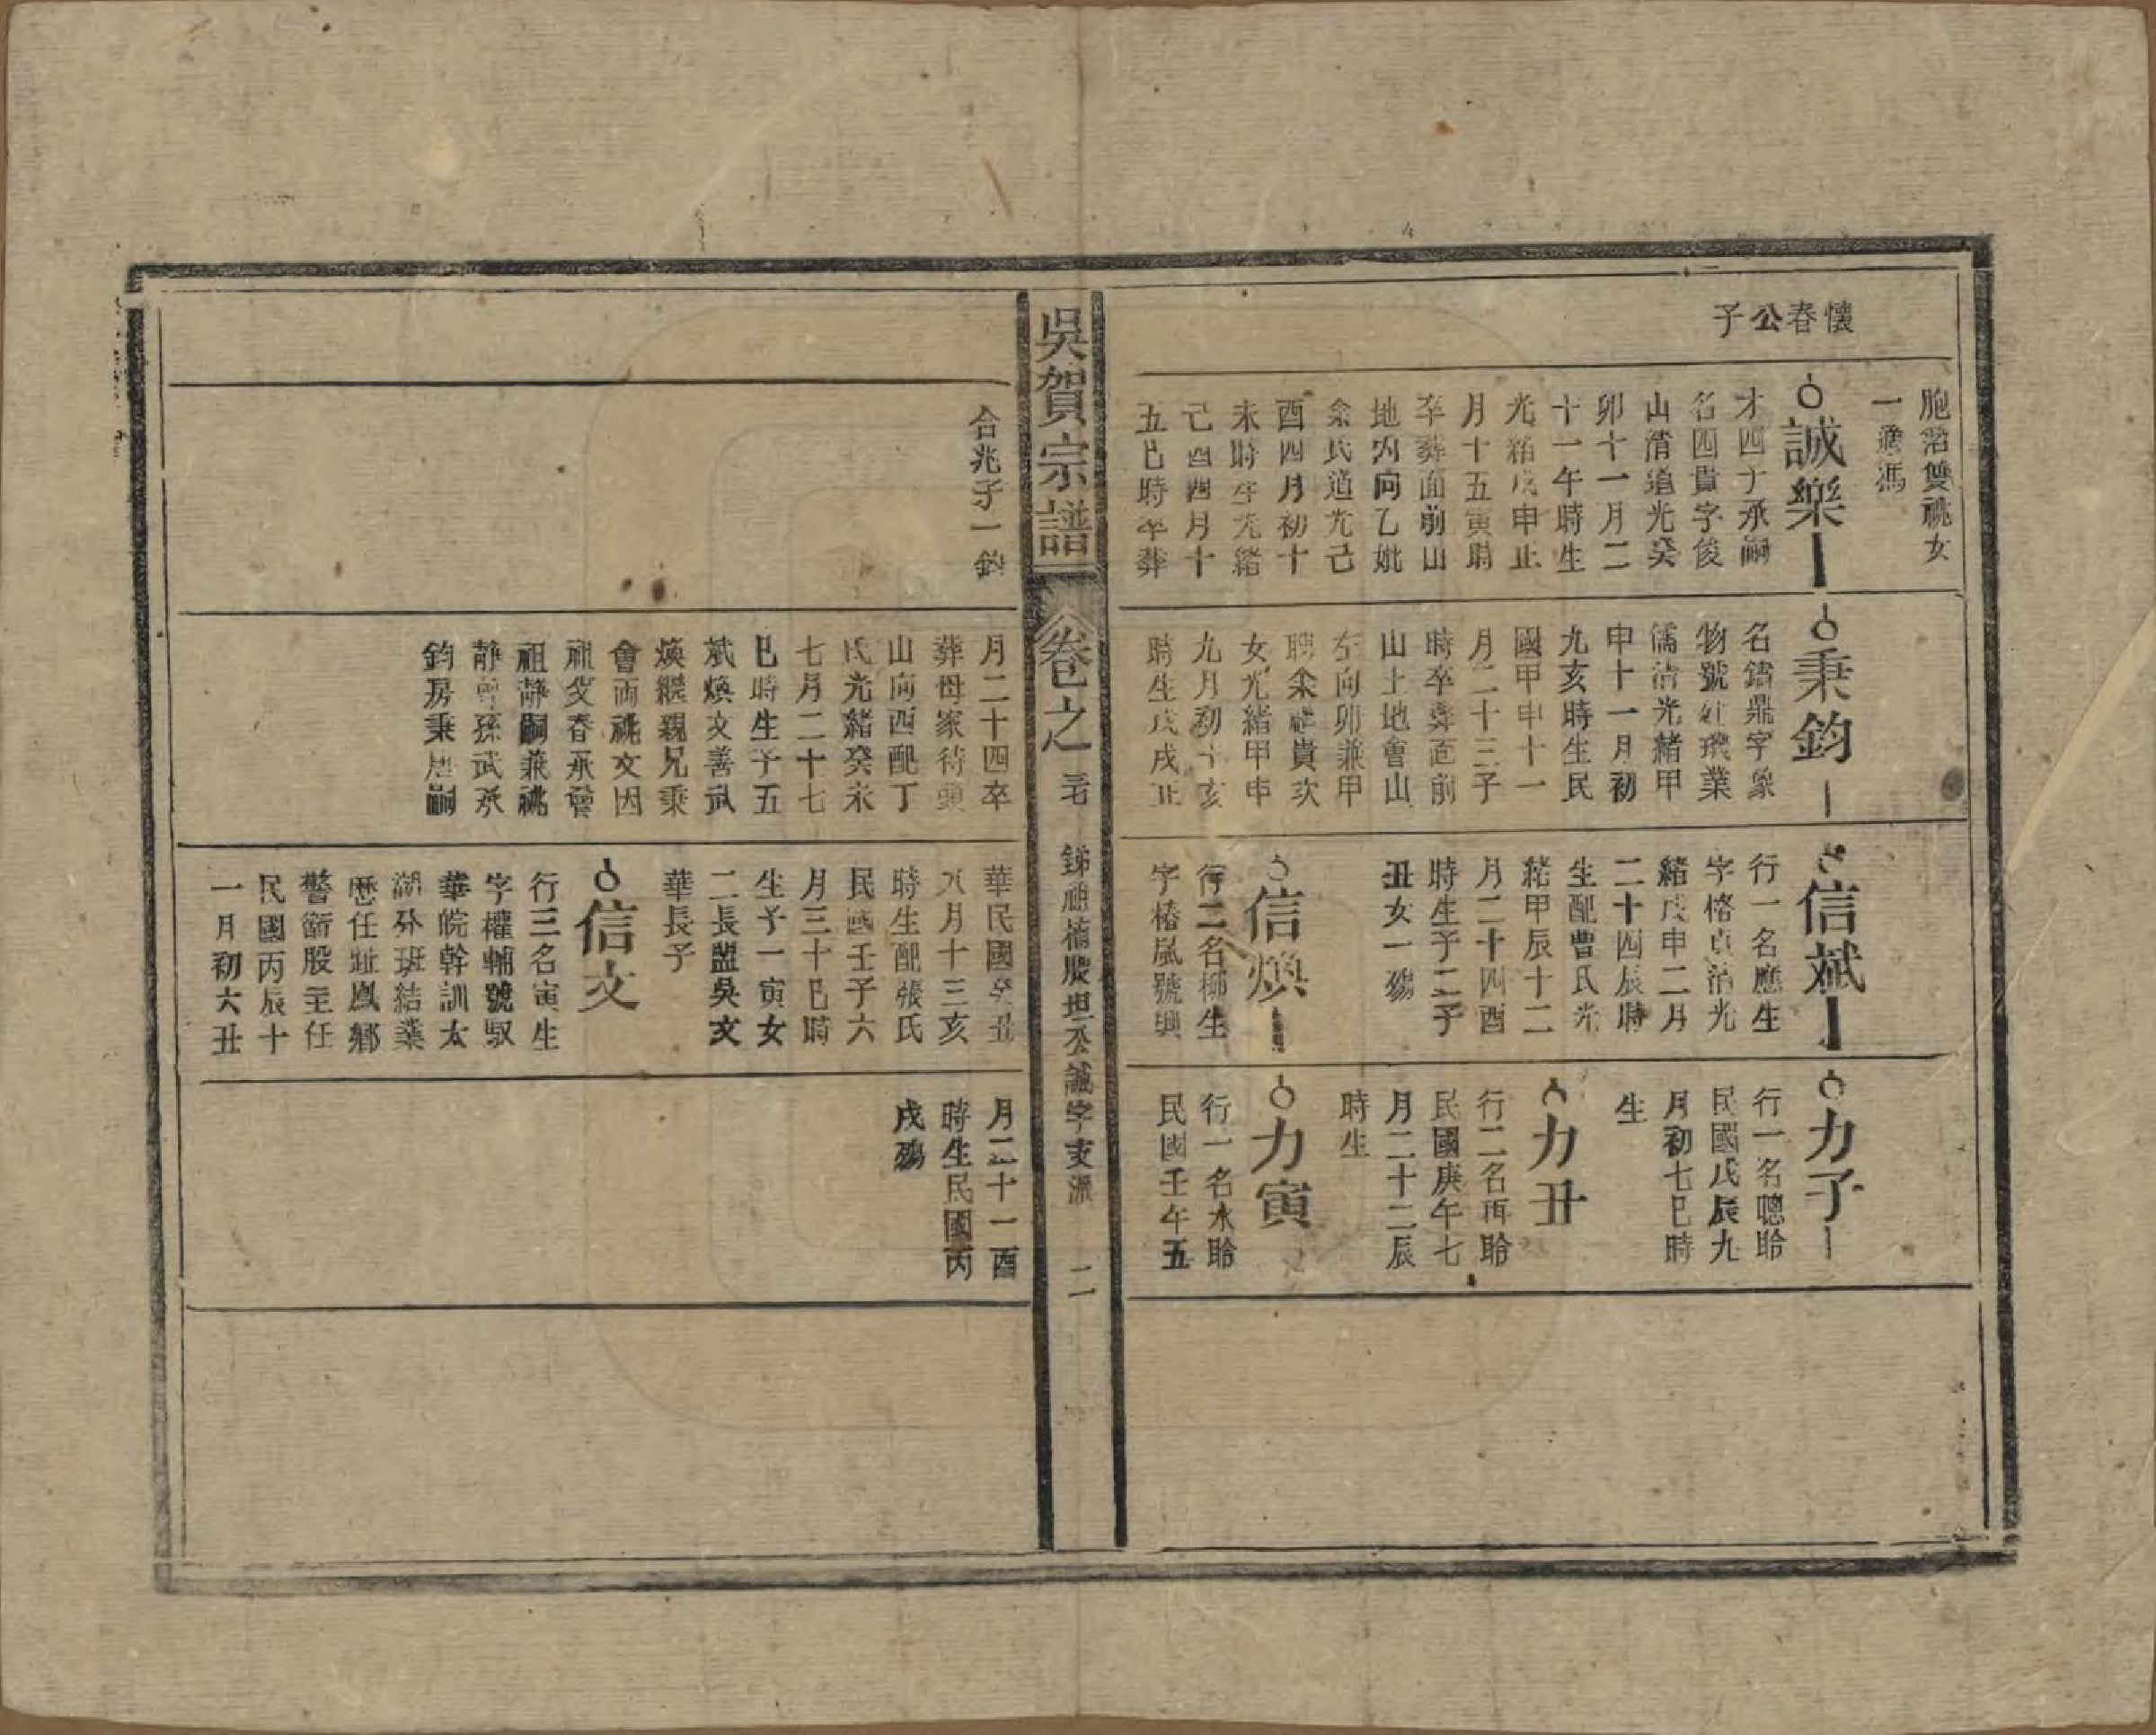 懷春公子
胞治雙祧女
一適馮
誠樂
才四子承嗣
名四貴字俊
山清道光癸
卯十一月二
十一午時生
光緒戊申正
月十五寅時
卒葬面前山
地內向乙妣
余氏道光己
酉四月初十
未時生光緒
己酉四月十
五巳時卒葬
秉鈞
名鑄鼎字象
物號紅璣業
儒清光緒甲
申十一月初
九亥時生民
國甲申十一
月二十三子
時卒葬直前
山上地會山
左向卯兼甲
聘余 貴次
女光緒甲申
九月初十亥
時生戊戌正
信斌
行一名應生
字格 清光
緒戊申二月
二十四辰時
生配曹氏光
緒甲辰十二
月二十四酉
時生子二子
丑女一殤
信煥
行二名柳生
字椿嵐號興
力子
行一名聰聆
民國戊辰九
月初七巳時
生
力丑
行二名再聆
民國庚午七
月二十二辰
時生
力寅
行一名水聆
民國壬午五
吳賀宗譜
卷之
股坦公誠字支派
二
合兆子一鈞
月二十四卒
葬母家待頭
山向酉配丁
氏光緒癸未
七月二十七
巳時生子五
斌煥文善武
煥繼親兄秉
會兩祧文因
祖父春承曾
祖靜嗣兼祧
靜曾孫武承
鈞房秉 嗣
華民國癸丑
九月十三亥
時生配張氏
民國壬子六
月三十巳時
生子一寅女
二長盟吳文
華長子
信文
行三名寅生
字權輔號馭
華皖幹訓太
湖分班結業
歷任 鳳鄉
警衛股主任
民國丙辰十
一月初六丑
月二十一酉
時生民國丙
戌殤